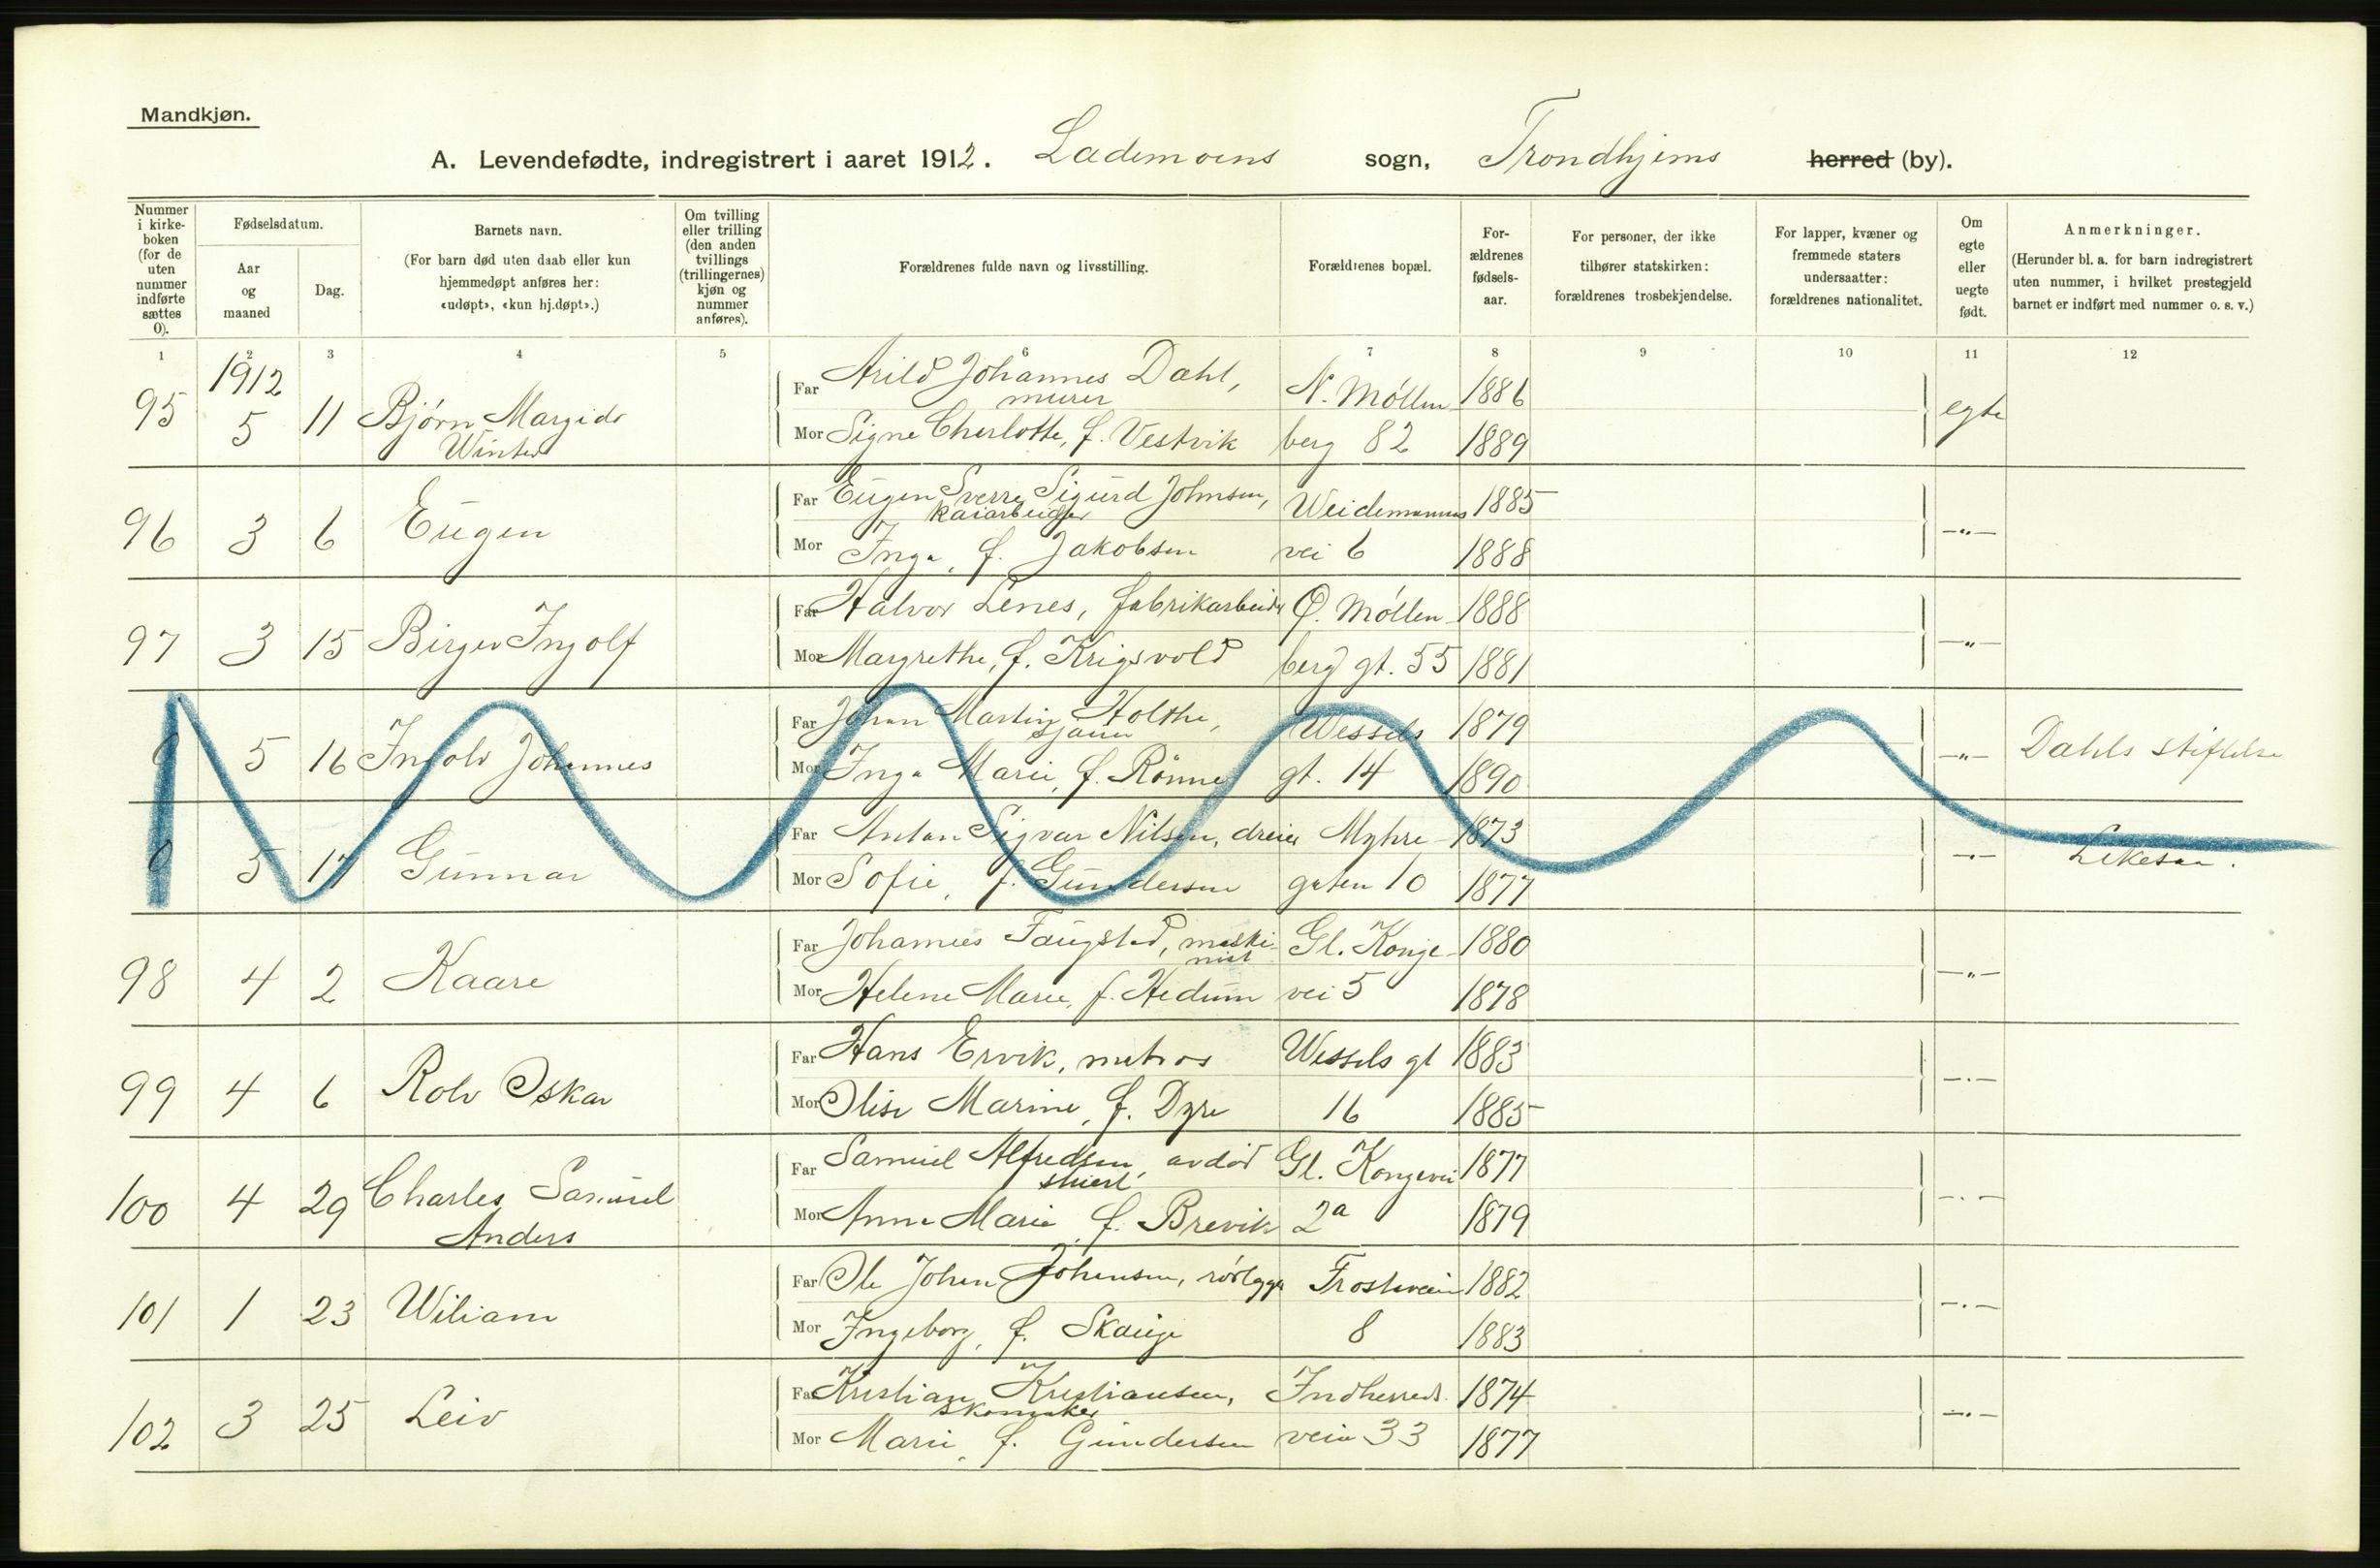 Mandkjøn.
A. Levendefødte, indregistrert i aaret 1912. Lademoens sogn, Trondhjems herred (by).
Nummer i kirke-boken (for de uten nummer indførte sættes 0).
Fødselsdatum.
Aar og maaned
Dag.
Barnets navn.
(For barn død uten daab eller kun hjemmedøpt anføres her: «udøpt», «kun hj.døpt».)
Om tvilling eller trilling (den anden tvillings (trillingernes) kjøn og nummer anføres).
Forældrenes fulde navn og livsstilling.
Forældrenes bopæl.
For-ældrenes fødsels-aar.
For personer, der ikke tilhører statskirken: forældrenes trosbekjendelse.
For lapper, kvæner og fremmede staters undersaatter: forældrenes nationalitet.
Om egte eller uegte født.
Anmerkninger.
(Herunder bl. a. for barn indregistrert uten nummer, i hvilket prestegjeld barnet er indført med nummer o. s. v.)
1 2 3 4 5 6 7 8 9 10 11 12
1912
95 5 11 Bjørn Margido Winter
Far Arild Johannes Dahl, murer N. Møllen- 1886 egte
Mor Signe Charlotte, f. Vestvik berg 82 1889
96 3 6 Eugen
Far Eugen Sverre Sigurd Johnsen, kaiarbeider Weidemanns 1885 —"—
Mor Inga, f. Jakobsen vei 6 1888
97 3 15 Birger Ingolf
Far Halvor Lenes, fabrikarbeider Ø. Møllen- 1888 —"—
Mor Margrethe, f. Krigsvold berg gt. 55 1881
0 5 16 Ingolv Johannes
Far Johan Martin Holthe, sjauer Wessels 1879 —"— Dahls stiftelse
Mor Inga Marie, f. Rönne gt. 14 1890
0 5 17 Gunnar
Far Anton Sigvar Nilsen, dreier Myhre- 1873 —"—
Mor Sofie, f. Gundersen gaten 10 1877
98 4 2 Kaare
Far Johannes Faugstad, maski-nist Gl. Konge- 1880 —"—
Mor Helene Marie, f. Hedum vei 5 1878
99 4 6 Rolv Oskar
Far Hans Ervik, matros Wessels gt 1883 —"—
Mor Olise Marine, f. Dyre 16 1885
100 4 29 Charles Samuel Anders
Far Samuel Alfredsen, avdød Gl. Kongevei 1877 —"—
Mor Anna Marie, f. Brevik 2a 1879
101 1 23 Wiliam
Far Ole Johan Johansen, rørlægger Frostaveien 1882 —"—
Mor Ingeborg, f. Skauge 8 1883
102 3 25 Leiv
Far Kristian Kristiansen, skomaker Indherreds- 1874 —"—
Mor Marie, f. Gundersen veien 33 1877